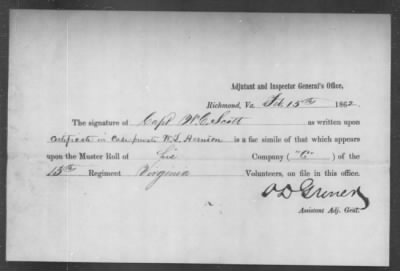 Adjutant and Inspector General's Office,
Richmond, Va. Feb 15th 1862.
The signature of Capt W. C. Scott as written upon
Certificate in Case private W. S. is a fac simile of that which appears
upon the Muster Roll of his Company ("C") of the
15th Regiment Virginia Volunteers, on file in this office.
Assistant Adj. Genl.